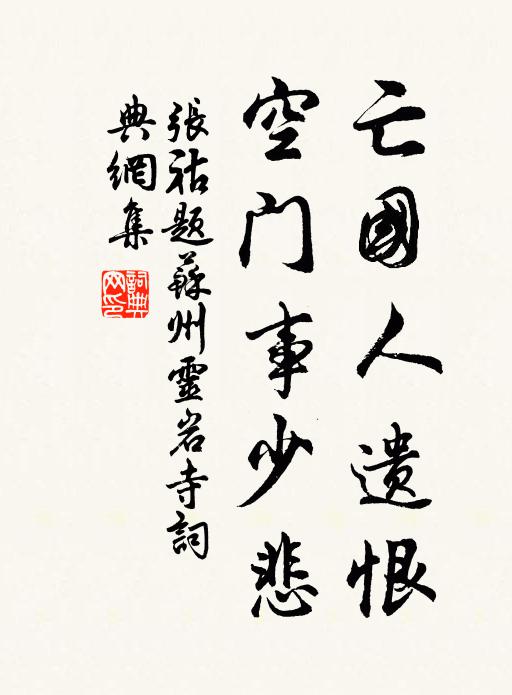 亡國人遺恨
空門事少悲
張祜題蘇州靈岩寺詞
典網集
詞典网印